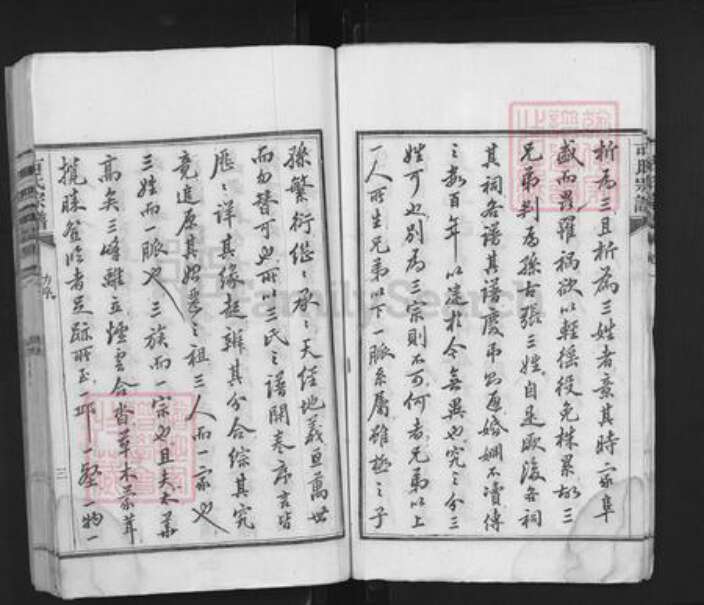 析為三且析為三姓者意其時家阜
盛而畏羅禍欲以輕徭役免株累故三
兄弟判為孫古張三姓自是厥後各祠
其祠各譜其譜慶弔照通婚姻不瀆傳
之數百年以迄於今無異也究之分三
姓可也別為三宗則不可何者兄弟以上
一人所生兄弟以下一脈系屬雖極之子
孫繁衍繼繼承承天經地義亘萬世
而勿替可也所以三氏之譜開卷序言皆
歷歷詳其緣起辨其分合綜其究
竟追原其始基之祖三人而一家也
三姓而一脈也三族而一宗也且夫木葉
高矣三峰離立煙雲合沓草木蒙茸
攬勝登臨者足跡所至一邱一壑一物一
宗譜
三
FamilySearch